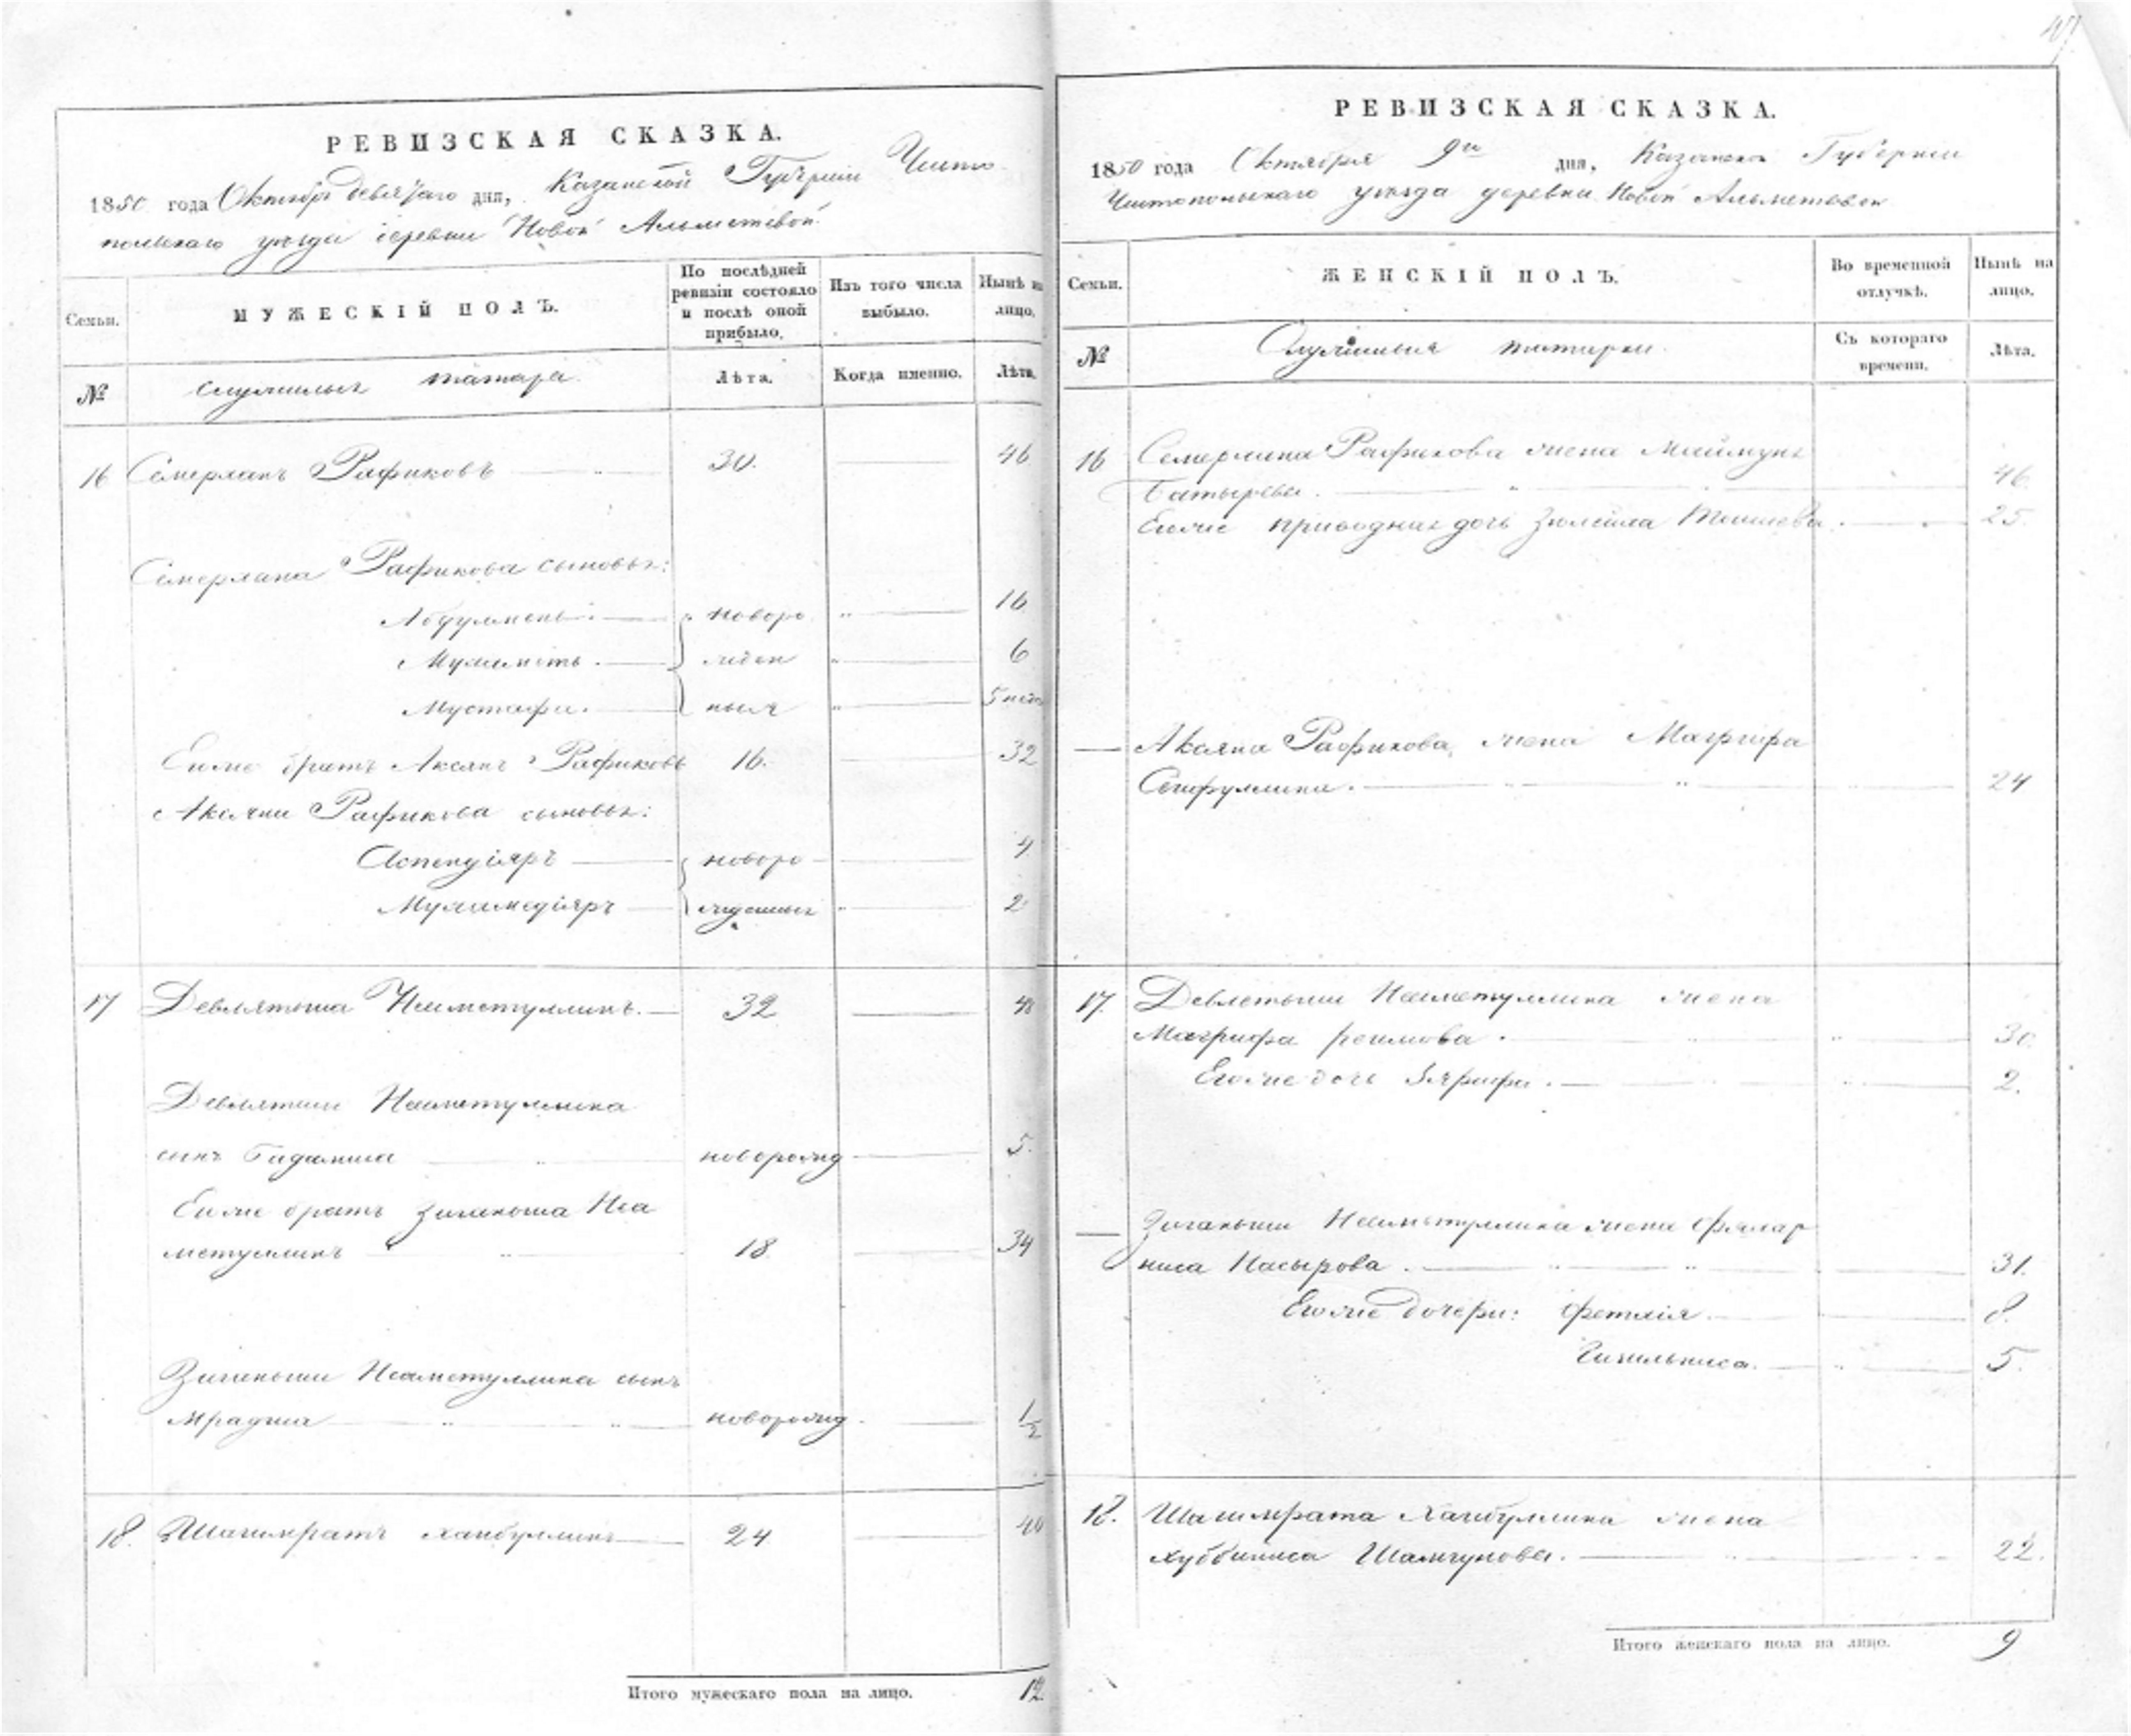 РЕВИЗСКАЯ СКАЗКА.
1850 года Октября девятаго дня, Казанской Губерніи Чисто
польскаго уезда деревни Новой Альметевой
Семьи.
МУЖЕСКІЙ ПОЛЪ.
По послѣдней ревизіи состояло и послѣ оной прибыло.
Изъ того числа выбыло.
Нынѣ на лицо.
№
служилыя татара
Лѣта.
Когда именно.
Лѣта.
16 Семерланъ Рафиковъ 30. 46
Семерлана Рафикова сыновья:
новоро 16
Мухаметь. жден 6
Мустафа. ныя
Егоже братъ Аксянъ Рафиковъ 16. 32
Аксяна Рафикова сыновья:
Аспендіяръ новоро 4
Мухамедіяръ жденныя 2
17 Девлятьша Неаметуллинъ. 32 48
Девлятши Неаметуллина
сынъ Бадамша новорожд 5.
Егоже братъ Зиганьша Неа
метуллинъ 18. 34
Зиганьши Неаметуллина сынъ
Мрадша новорожд. 1/2
18. Шагимратъ Хаибуллинъ 24 40
Итого мужескаго пола на лицо. 12.
РЕВИЗСКАЯ СКАЗКА.
1850 года Октября 9го дня, Казанской Губернии
Чистопольскаго уезда деревни Новой Альметевой
Семьи.
ЖЕНСКІЙ ПОЛЪ.
Во временной отлучкѣ.
Нынѣ на лицо.
№
Служилыя татарки.
Съ котораго времени.
Лѣта.
16 Семерлана Рафикова жена Маймуна
Батырева. 46.
Егоже приводная дочь 25.
Аксяна Рафикова, жена Магрифа
Сейфуллина. 24
17. Девлетьши Неаметуллина жена
Магрифа 30.
Егоже дочь Зярифа. 2.
Зиганьши Неаметуллина жена Фяхар
ниса Насырова. 31.
Егоже дочери: 8.
5.
18. Шагимрата Хаибуллина жена
Хуббиниса 22.
Итого женскаго пола на лицо. 9